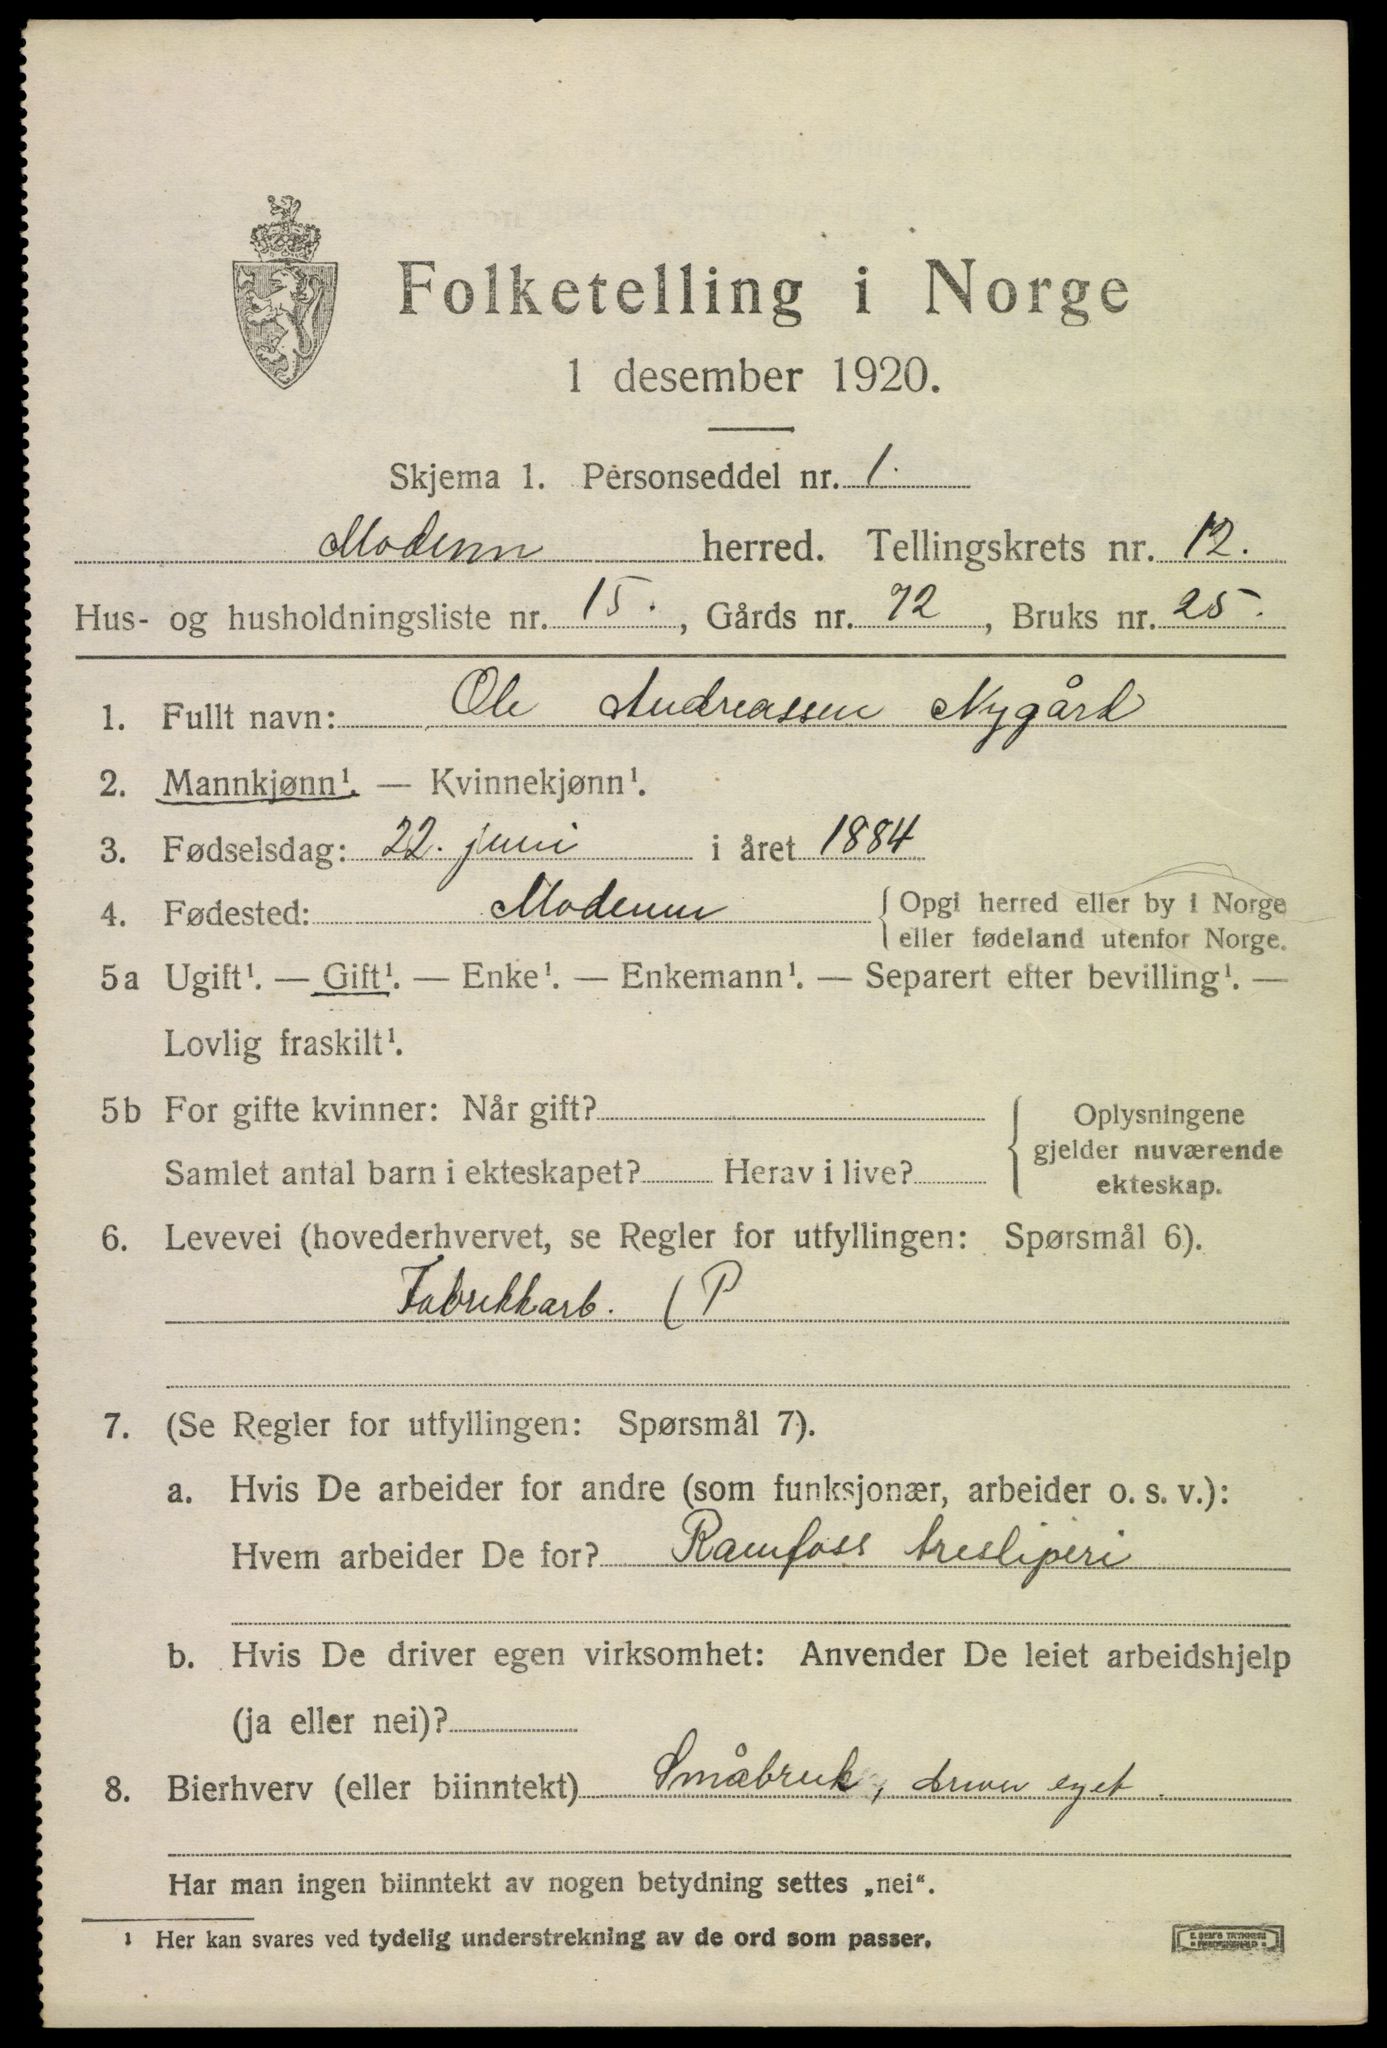 Folketelling i Norge
1 desember 1920.
Skjema 1. Personseddel nr. 1.
Modum herred. Tellingskrets nr. 12.
Hus- og husholdningsliste nr. 15., Gårds nr. 72, Bruks nr. 25.
1. Fullt navn: Ole Andreassen Nygård
2. Mannkjønn¹. — Kvinnekjønn¹.
3. Fødselsdag: 22. juni i året 1884
4. Fødested: Modum { Opgi herred eller by i Norge
eller fødeland utenfor Norge.
5a Ugift¹. — Gift¹. — Enke¹. — Enkemann¹. — Separert efter bevilling¹. —
Lovlig fraskilt¹.
5b For gifte kvinner: Når gift?
Samlet antal barn i ekteskapet? Herav i live?
{ Oplysningene
gjelder nuværende
ekteskap.
6. Levevei (hovederhvervet, se Regler for utfyllingen: Spørsmål 6).
Fabrikkarb. (P
7. (Se Regler for utfyllingen: Spørsmål 7).
a. Hvis De arbeider for andre (som funksjonær, arbeider o. s. v.):
Hvem arbeider De for? Ramfoss tresliperi
b. Hvis De driver egen virksomhet: Anvender De leiet arbeidshjelp
(ja eller nei)?
8. Bierhverv (eller biinntekt) Småbruk, driver eget.
Har man ingen biinntekt av nogen betydning settes „nei“.
¹ Her kan svares ved tydelig understrekning av de ord som passer.